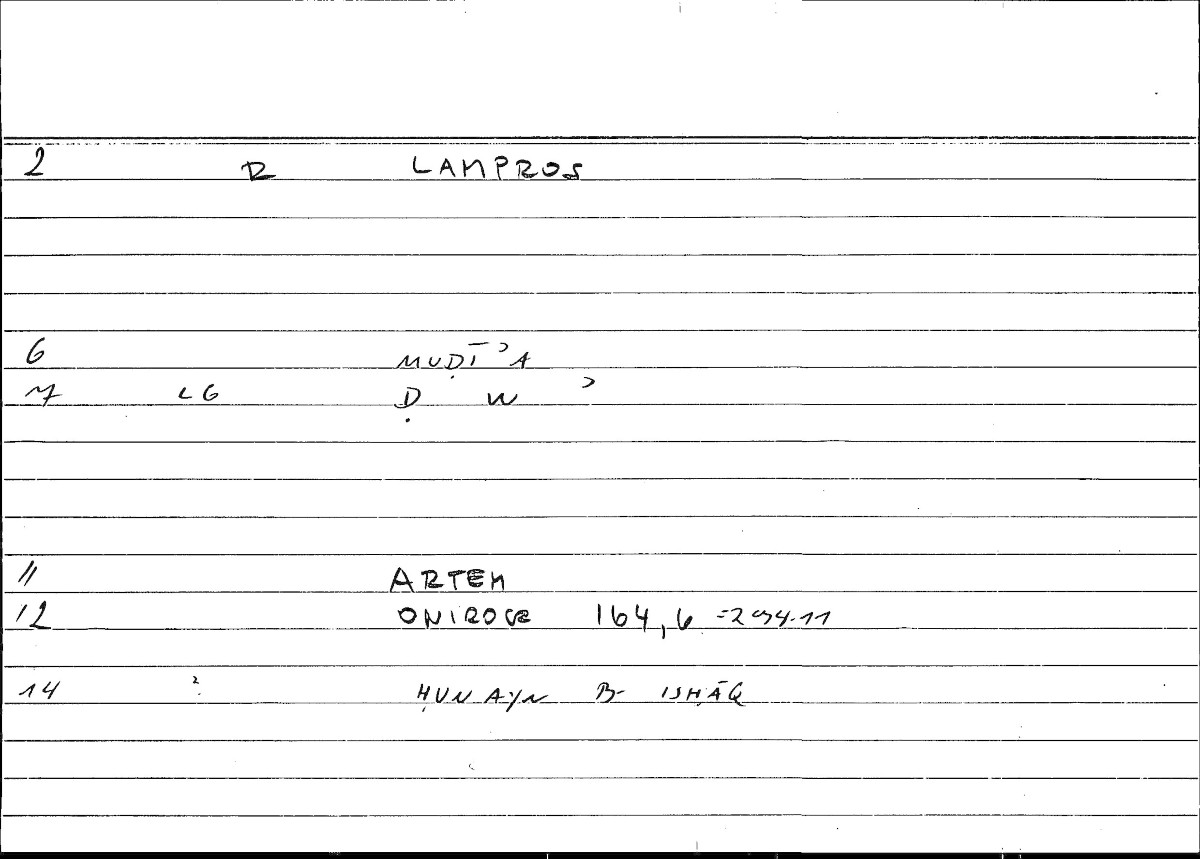 2 R LAMPROS
6 MUḌĪʾA
7 LG Ḍ W ʾ
11 ARTEM
12 ONIROCR 164,6 =294.11
14 ? ḤUNAYN B- ISḤĀQ